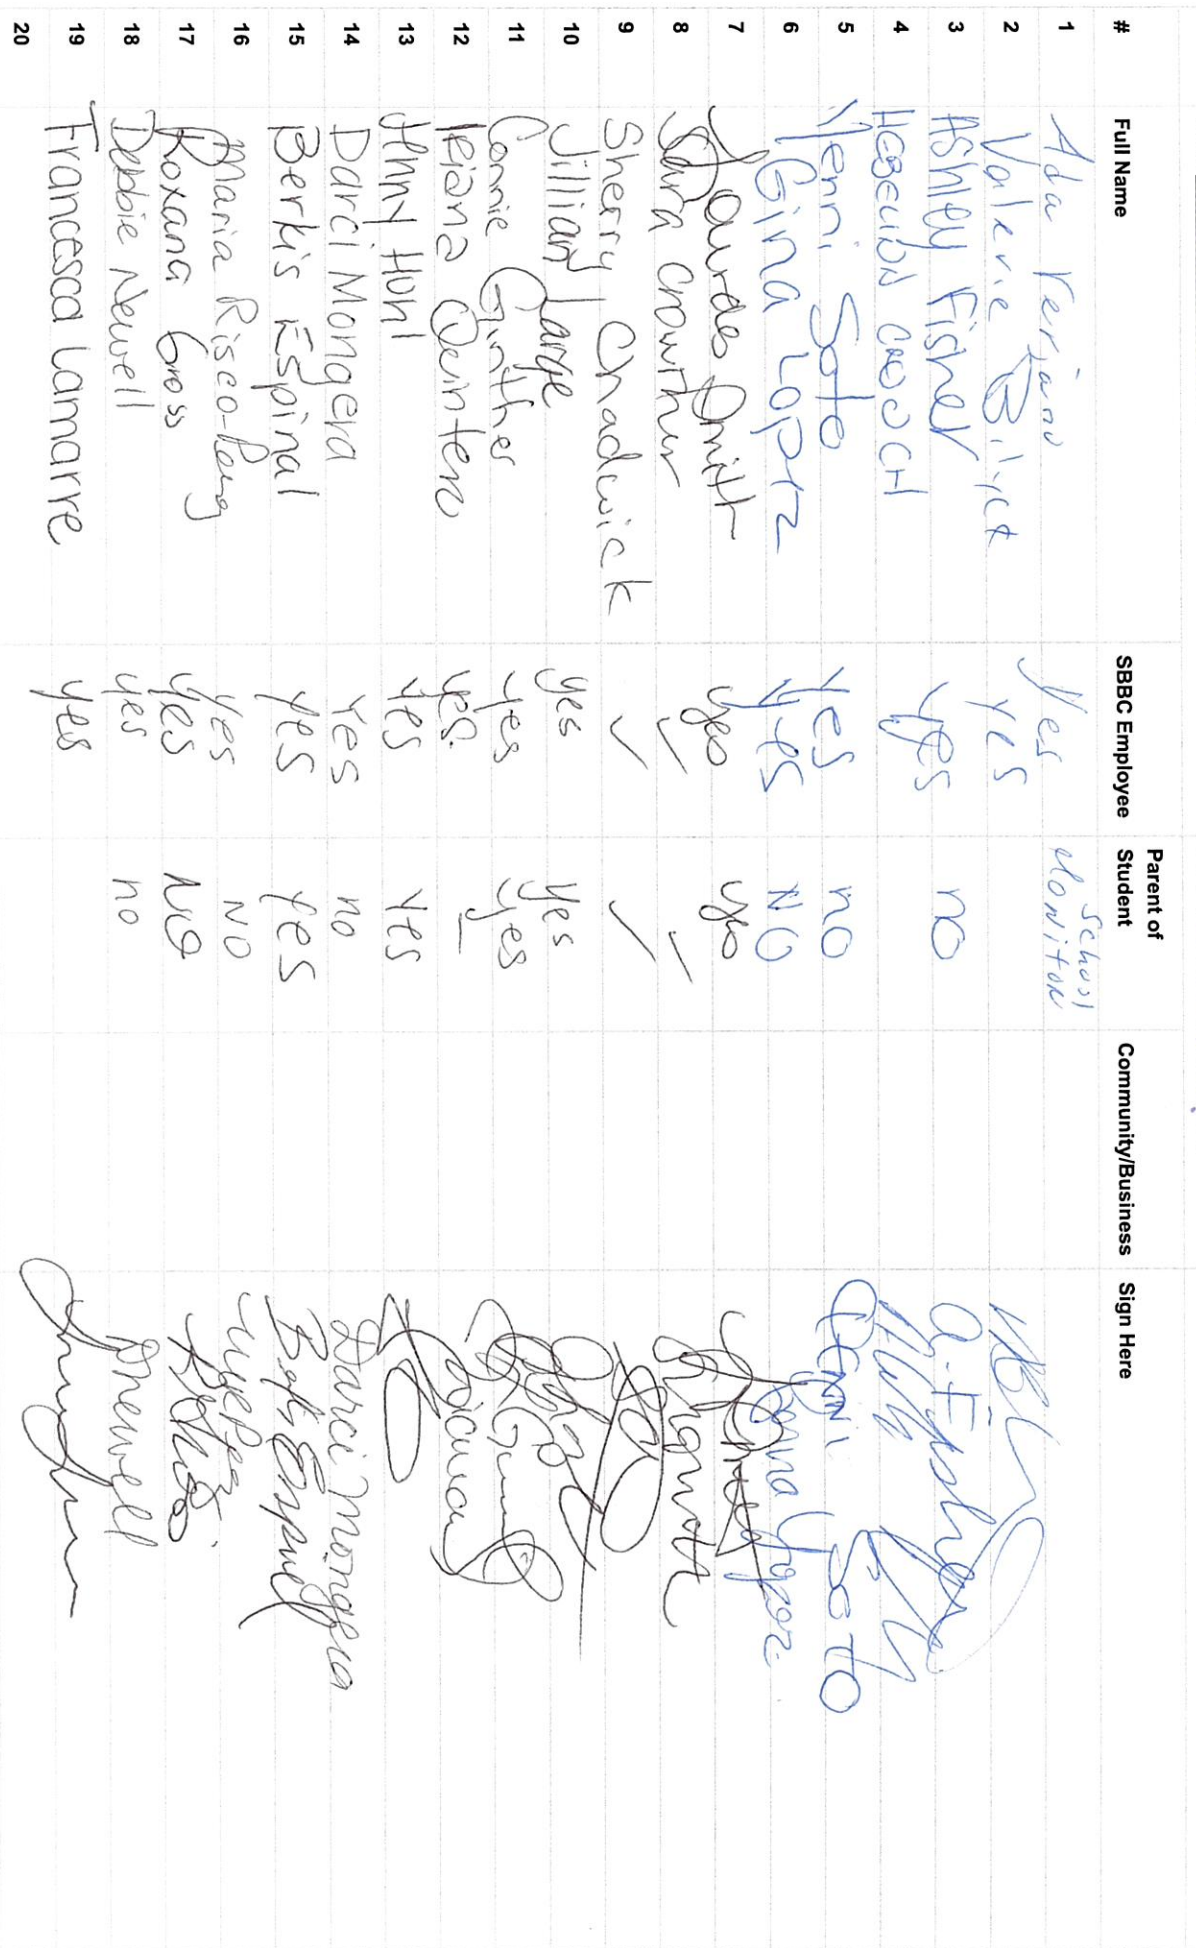 # Full Name SBBC Employee Parent of Student Community/Business Sign Here
1 Ada Yes School Monitor
2 Valerie Yes
3 Ashley Fisher yes no A. Fisher
4
5 Yenni Soto Yes no Yenni Soto
6 Gina Lopez Yes NO Gina Lopez
7 Lourdes Smith yes yes
8 Sara Crowther ✓ ✓
9 Sherry Chadwick ✓ ✓
10 Jillian Large yes yes
11 Connie Ginther yes yes
12 Quintero yes. —
13 Jenny Hohl Yes Yes
14 Darci Mongera Yes no Darci Mongera
15 Berkis Espinal Yes Yes Berkis Espinal
16 Maria Risco- Yes NO
17 Roxana Gross Yes NO
18 Debbie Newell yes no DNewell
19 Francesca Lamarre yes
20